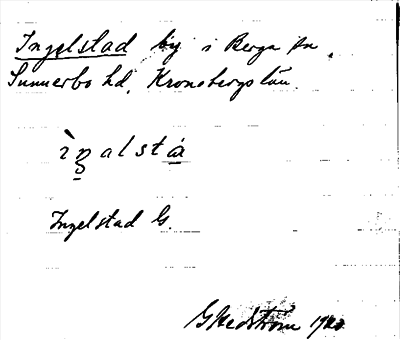 Ingelstad by i Berga sn,
Sunnerbo hd, Kronobergs län.
ìŋalstá
Ingelstad G.
G Hedström 19